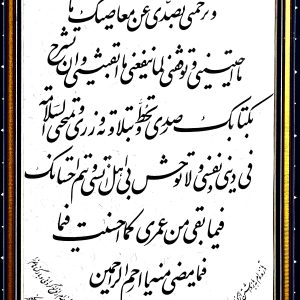 و ترحمنی بصدی عن معاصیک ما
احییتنی و توفقنی لما ینفعنی ما ابقیتنی و ان تشرح
بکتابک صدری و تحط بتلاوته وزری و تمنحنی السلامة
فی دینی و نفسی و لا توحش بی اهل انسی و تتم احسانک
فیما بقی من عمری کما احسنت فیما
فیما مضی منه یا ارحم الراحمین